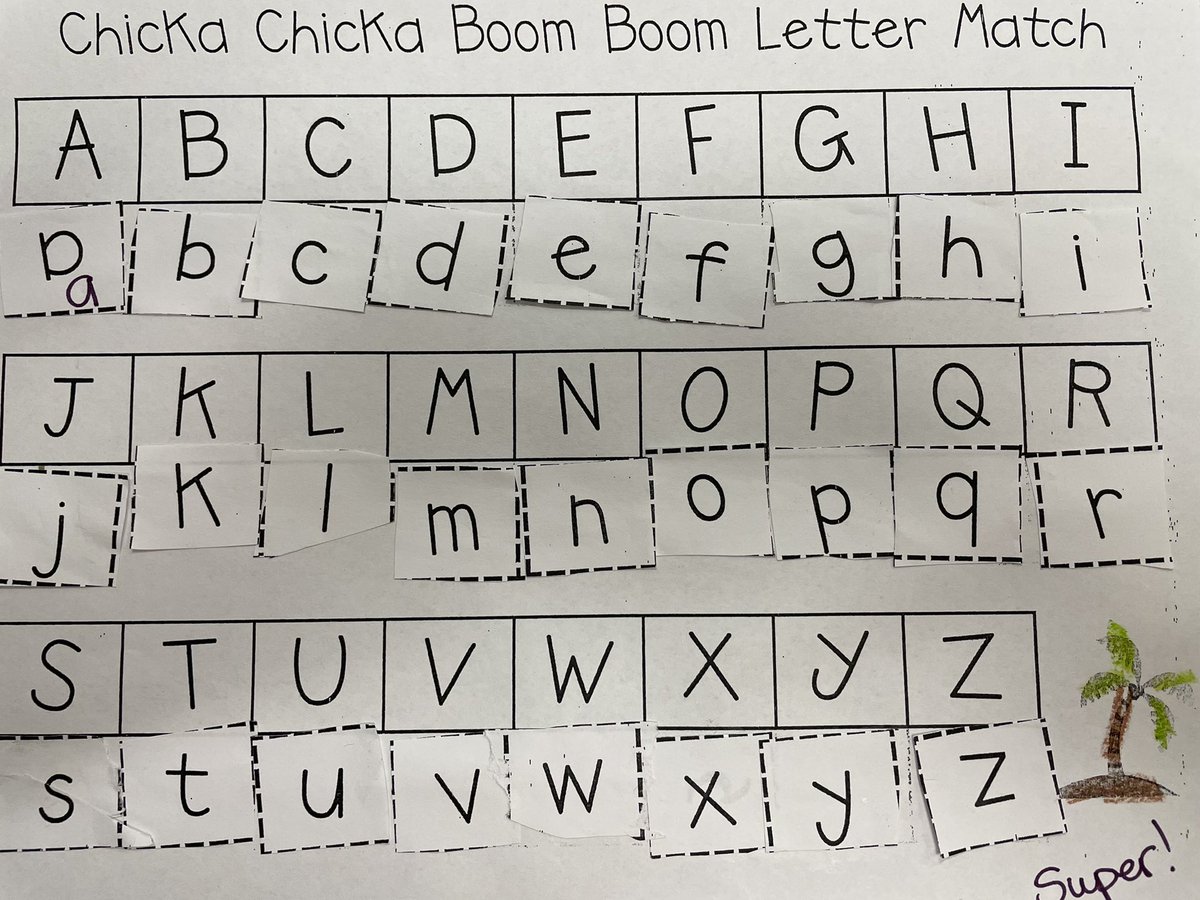 Chicka Chicka Boom Boom Letter Match
A B C D E F G H I
p b c d e f g h i
a
J K L M N O P Q R
j k l m n o p q r
S T U V W X Y Z
s t u v w x y z
Super!